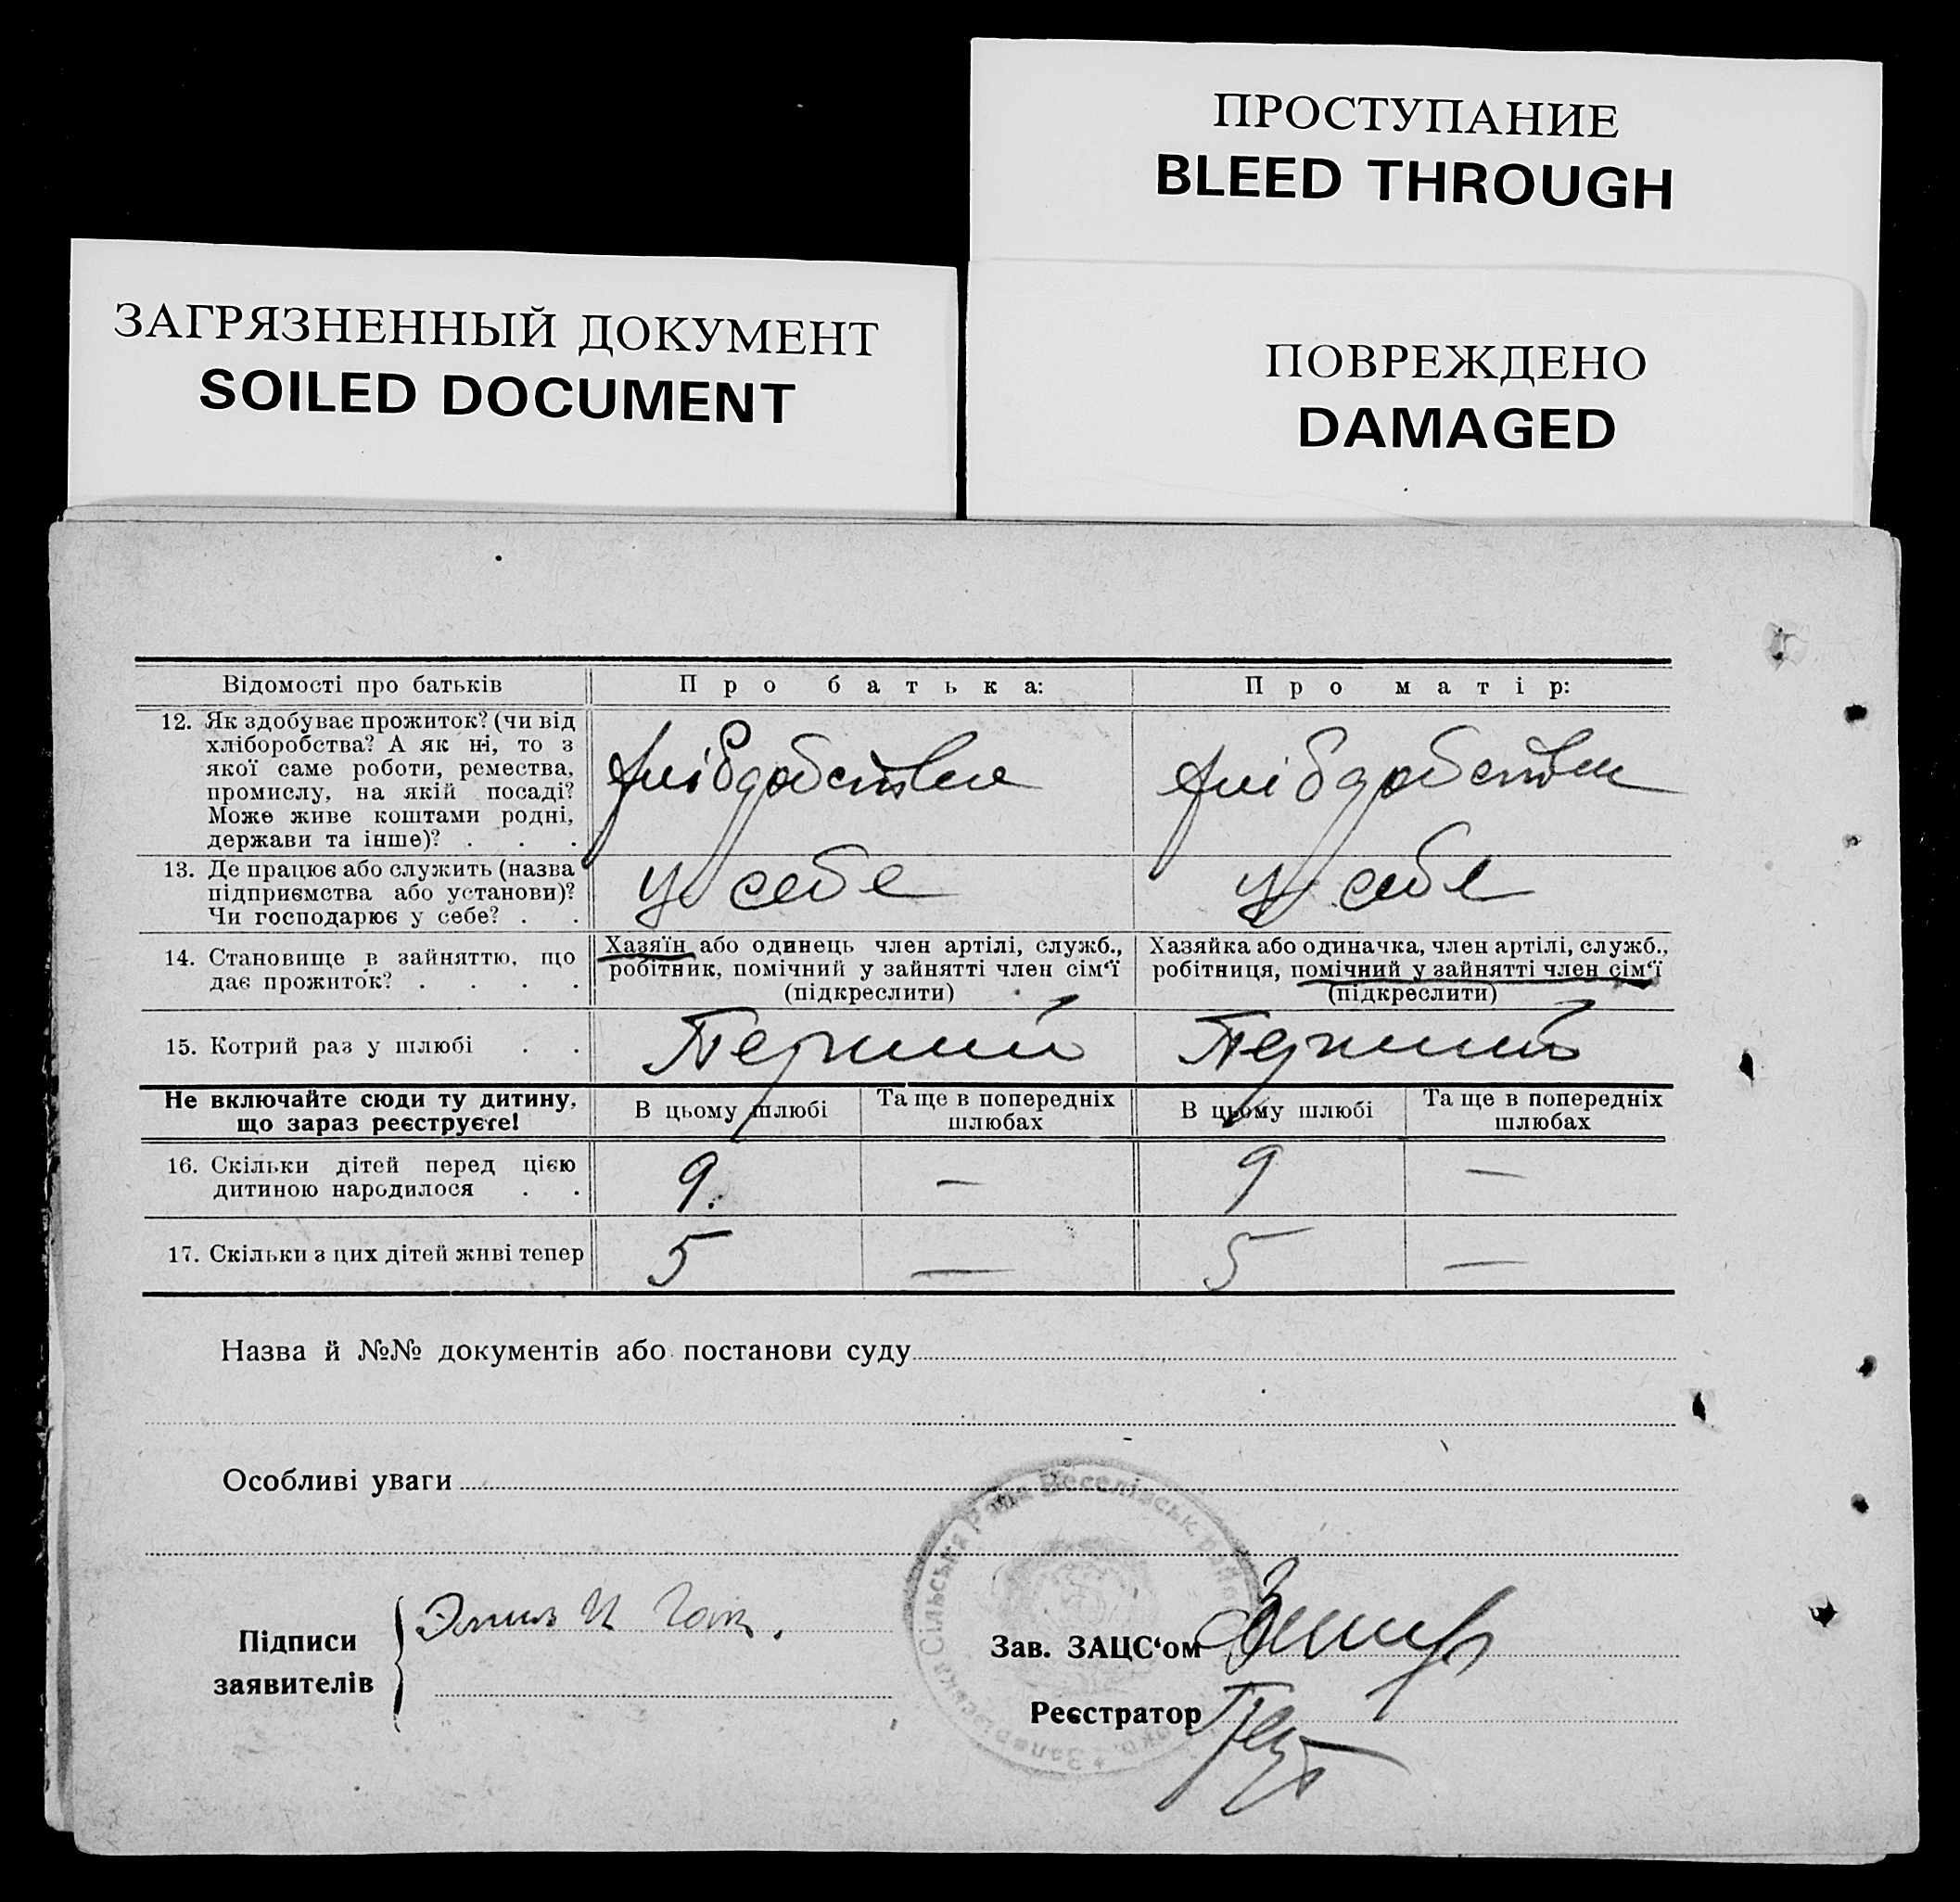 ПРОСТУПАНИЕ
BLEED THROUGH
ЗАГРЯЗНЕННЫЙ ДОКУМЕНТ
SOILED DOCUMENT
ПОВРЕЖДЕНО
DAMAGED
Відомості про батьків
Про батька:
Про матір:
12. Як здобуває прожиток? (чи від
хліборобства? А як ні, то з
якої саме роботи, ремества,
промислу, на якій посаді?
Може живе коштами родні,
держави та інше)? . . .
13. Де працює або служить (назва
підприємства або установи)?
Чи господарює у себе? . .
у себе
у себе
14. Становище в зайняттю, що
дає прожиток? . . . .
Хазяїн або одинець член артілі, служб.,
робітник, помічний у зайнятті член сім‘ї
(підкреслити)
Хазяйка або одиначка, член артілі, служб.,
робітниця, помічний у зайнятті член сім‘ї
(підкреслити)
15. Котрий раз у шлюбі . .
Перший
Перший
Не включайте сюди ту дитину,
що зараз реєструєте!
В цьому шлюбі
Та ще в попередніх
шлюбах
В цьому шлюбі
Та ще в попередніх
шлюбах
16. Скільки дітей перед цією
дитиною народилося . .
9.
—
9
—
17. Скільки з цих дітей живі тепер
5
—
5
—
Назва й №№ документів або постанови суду
Особливі уваги
Сільська Рада Веселівськ.
Підписи
заявителів
Зав. ЗАЦС‘ом
Реєстратор